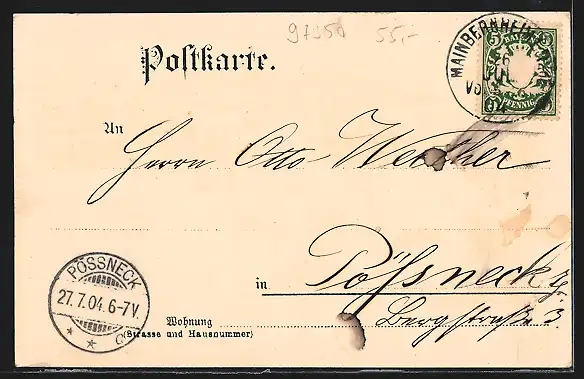 97350 55,-
Postkarte.
MAINBERNHEIM
5 BAYERN 5
PFENNIG
An
Herrn Otto Walther
in Pößneck
PÖSSNECK
27.7.04.6-7V.
* * c
Wohnung Bergstraße 3.
(Strasse und Hausnummer)